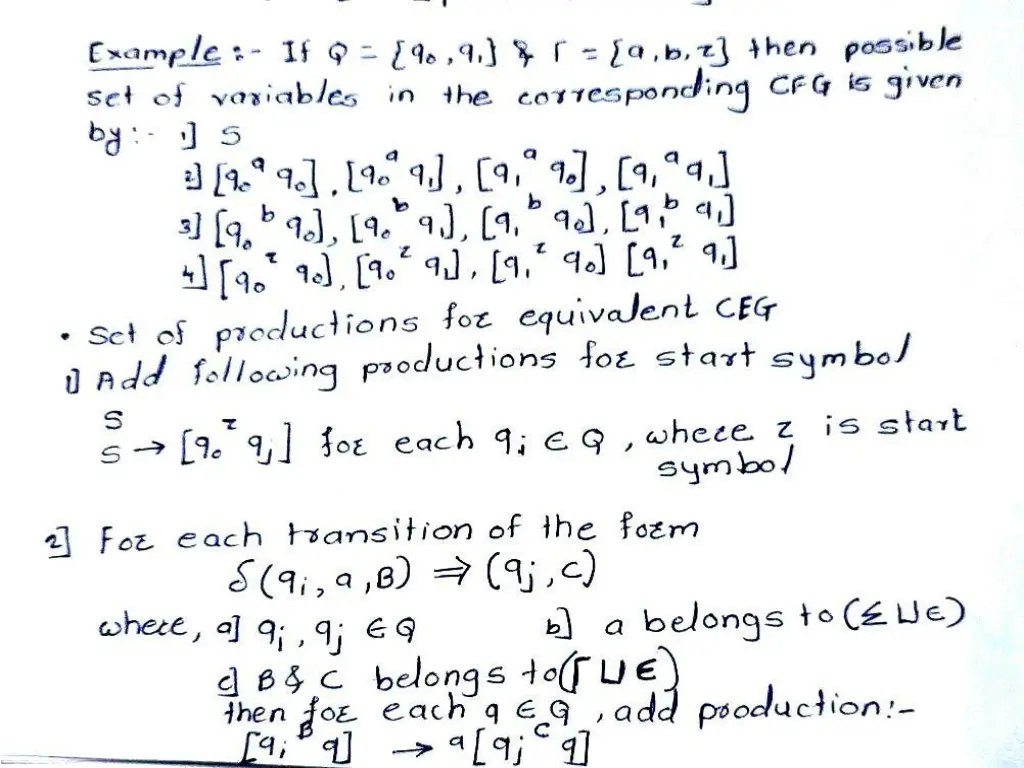 Example :- If Q = {q₀, q₁} & Γ = {a, b, z} then possible
set of variables in the corresponding CFG is given
by :- 1] S
2] [q₀ᵃ q₀], [q₀ᵃ q₁], [q₁ᵃ q₀], [q₁ᵃ q₁]
3] [q₀ᵇ q₀], [q₀ᵇ q₁], [q₁ᵇ q₀], [q₁ᵇ q₁]
4] [q₀ᶻ q₀], [q₀ᶻ q₁], [q₁ᶻ q₀] [q₁ᶻ q₁]
• Set of productions for equivalent CFG
1] Add following productions for start symbol
S
S → [q₀ᶻ qⱼ] for each qⱼ ∈ Q, where z is start
symbol
2] For each transition of the form
δ(qᵢ, a, B) ⇒ (qⱼ, C)
where, a] qᵢ, qⱼ ∈ Q b] a belongs to (Σ ⊔ ∈)
c] B & C belongs to (Γ ⊔ ∈)
then for each q ∈ Q, add production:-
[qᵢ ᴮ q] → a[qⱼ ᶜ q]